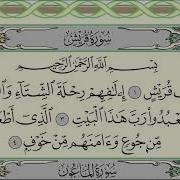 سُورَةُ قُرَيْشٍ
بِسْمِ ٱللَّهِ ٱلرَّحْمَٰنِ ٱلرَّحِيمِ
قُرَيْشٍ ١ إِۦلَٰفِهِمْ رِحْلَةَ ٱلشِّتَآءِ وَٱل
عْبُدُوا۟ رَبَّ هَٰذَا ٱلْبَيْتِ ٣ ٱلَّذِىٓ أَطْعَ
مِّن جُوعٍ وَءَامَنَهُم مِّنْ خَوْفٍۭ ٤
سُورَةُ ٱلْمَاعُونِ